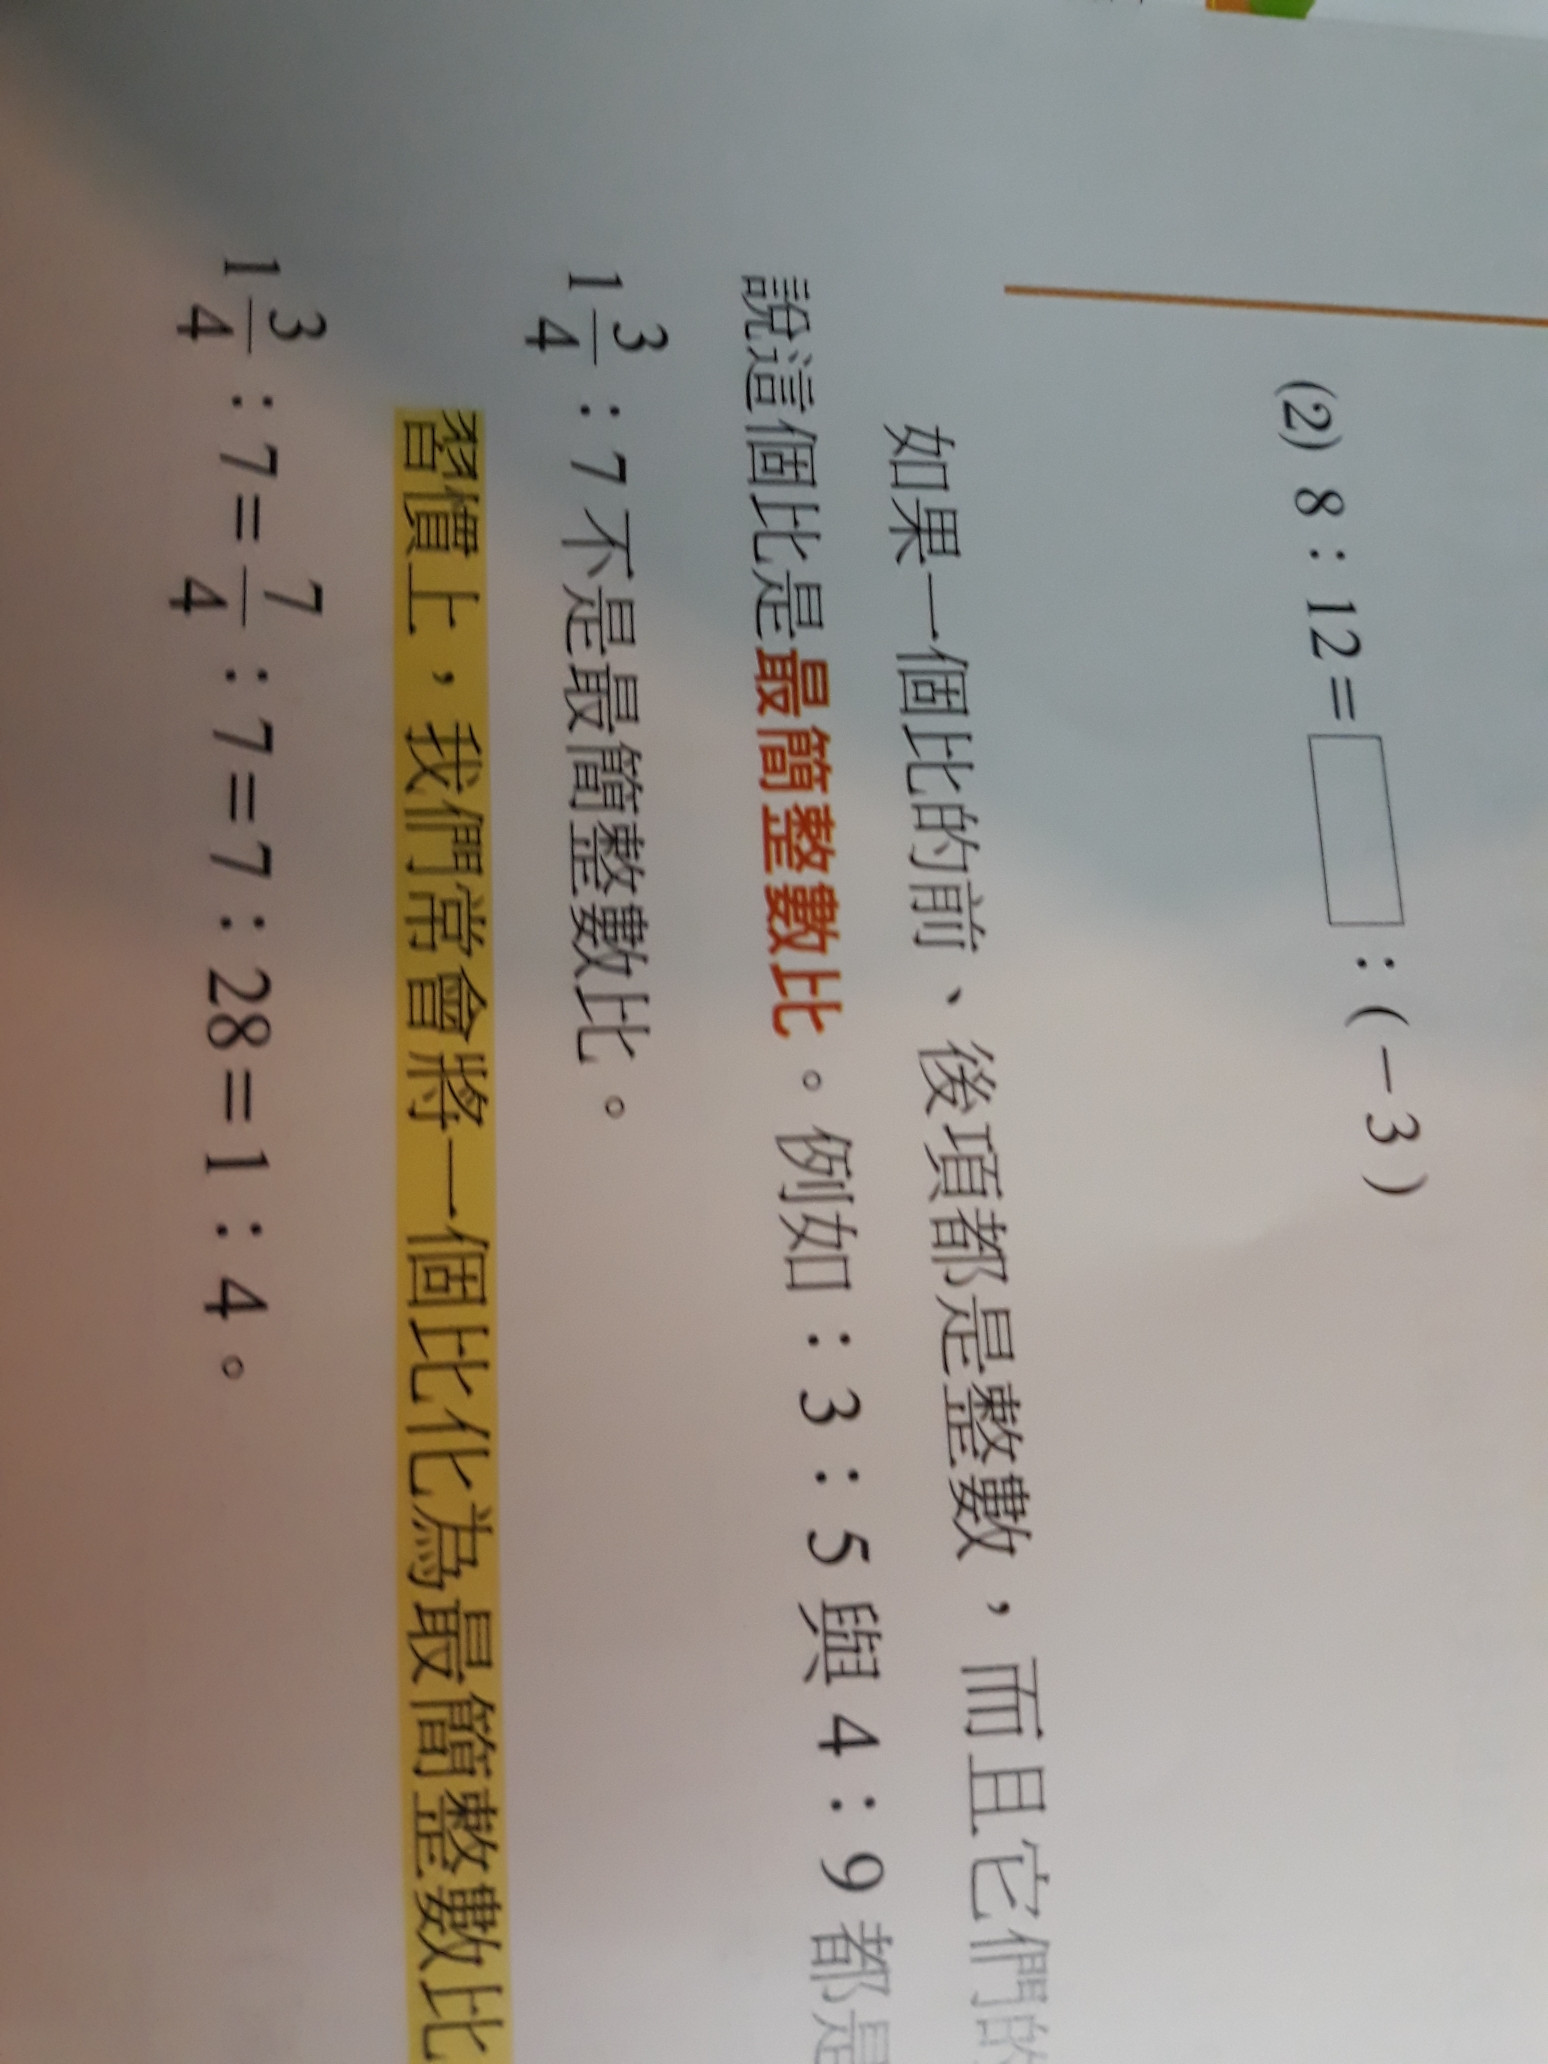 (2) 8：12＝□：(－3)
如果一個比的前、後項都是整數，而且它們的
說這個比是最簡整數比。例如：3：5 與 4：9 都是
1 3/4：7 不是最簡整數比。
習慣上，我們常會將一個比化為最簡整數比
1 3/4：7＝7/4：7＝7：28＝1：4。